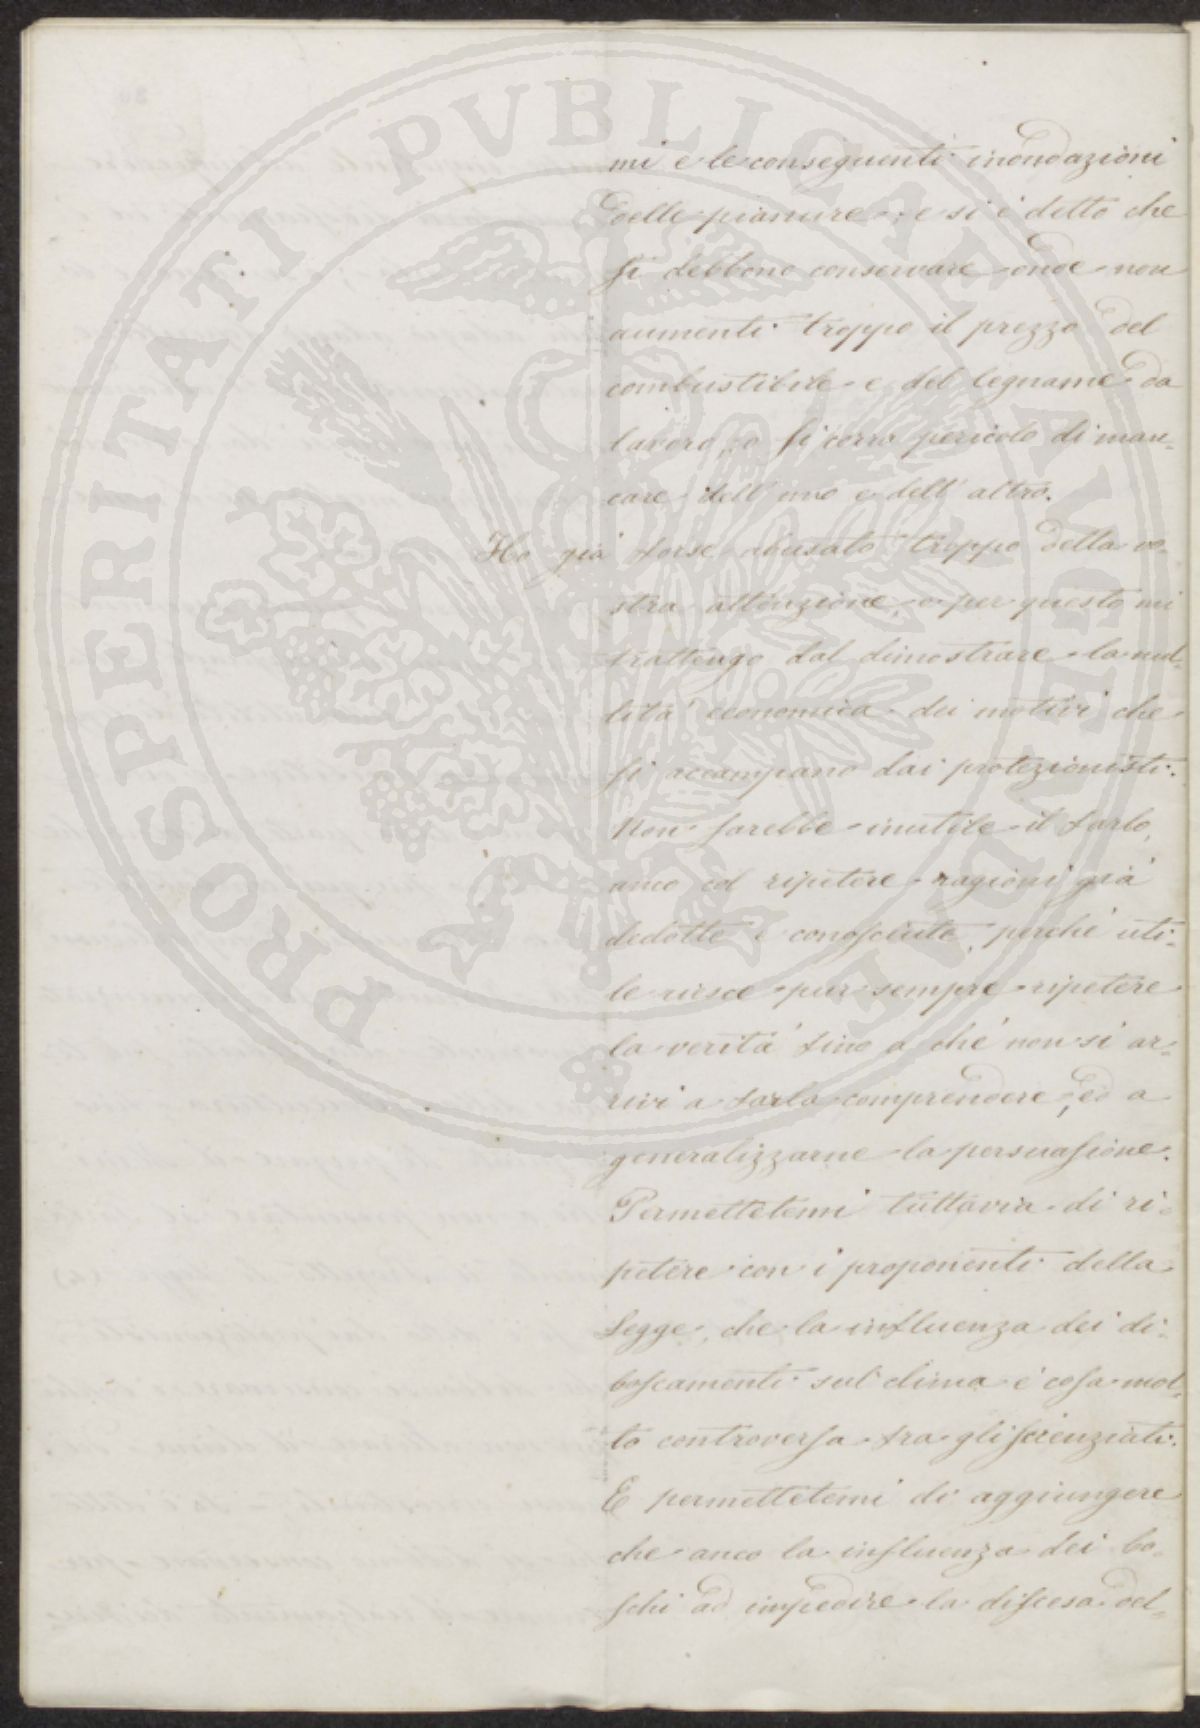 PROSPERITATI PVBLICAE AVGENDAE
mi e le conseguenti inondazioni
delle pianure: e si è detto che
si debbono conservare onde non
aumenti troppo il prezzo del
combustibile e del legname da
lavoro, o si corra pericolo di man-
care dell'uno e dell'altro.
Ho già forse abusato troppo della vo-
stra attenzione, e per questo mi
trattengo dal dimostrare la nul-
lità economica dei motivi che
si accampano dai protezionisti.
Non sarebbe inutile il farlo,
anco col ripetere ragioni già
dedotte e conosciute, perché uti-
le riesce pur sempre ripetere
la verità fino a ché non si ar-
rivi a farla comprendere, ed a
generalizzarne la persuasione.
Permettetemi tuttavia di ri-
petere con i proponenti della
Legge, che la influenza dei di-
boscamenti sul clima è cosa mol-
to controversa fra gli scienziati.
E permettetemi di aggiungere
che anco la influenza dei bo-
schi ad impedire la discesa del-